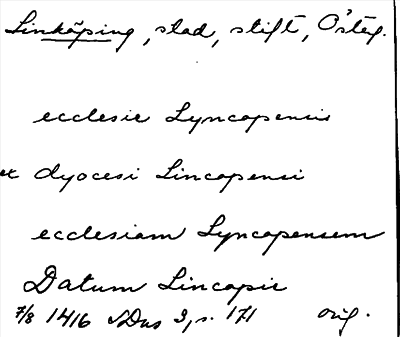 Linköping, stad, stift, Östg.
ecclesie Lyncopensis
ex dyocesi Lincopensi
ecclesiam Lyncopensem
Datum Lincopie
7/8 1416 SDns 3, s. 171 orig.